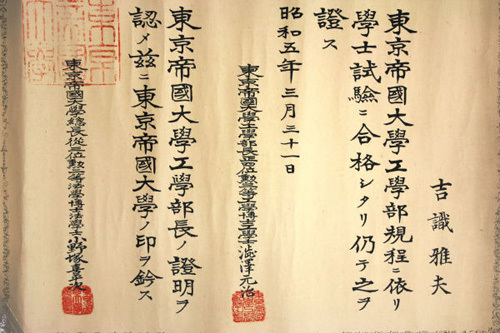 吉識雅夫
東京帝國大學工學部規程ニ依リ
學士試驗ニ合格シタリ仍テ之ヲ
證ス
昭和五年三月三十一日
東京帝國大學工學部長正四位勲三等工學博士工學士澁澤元治
東京帝國大學工學部長ノ證明ヲ
認メ玆ニ東京帝國大學ノ印ヲ鈐ス
東京帝國大學總長從三位勲二等法學博士法學士小野塚喜平次